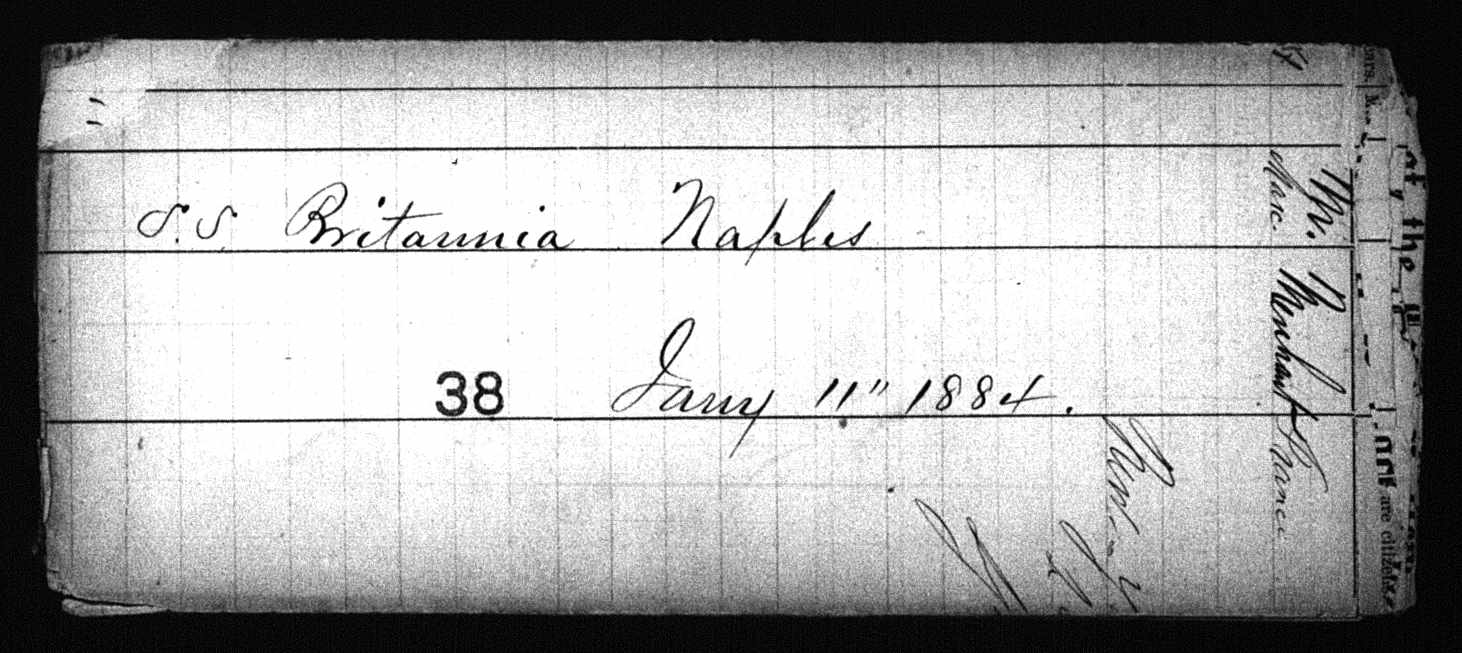 S.S Britannia Naples
38 Jany 11" 1884.
M. Merchant France
Masc.
at, the
are citizens